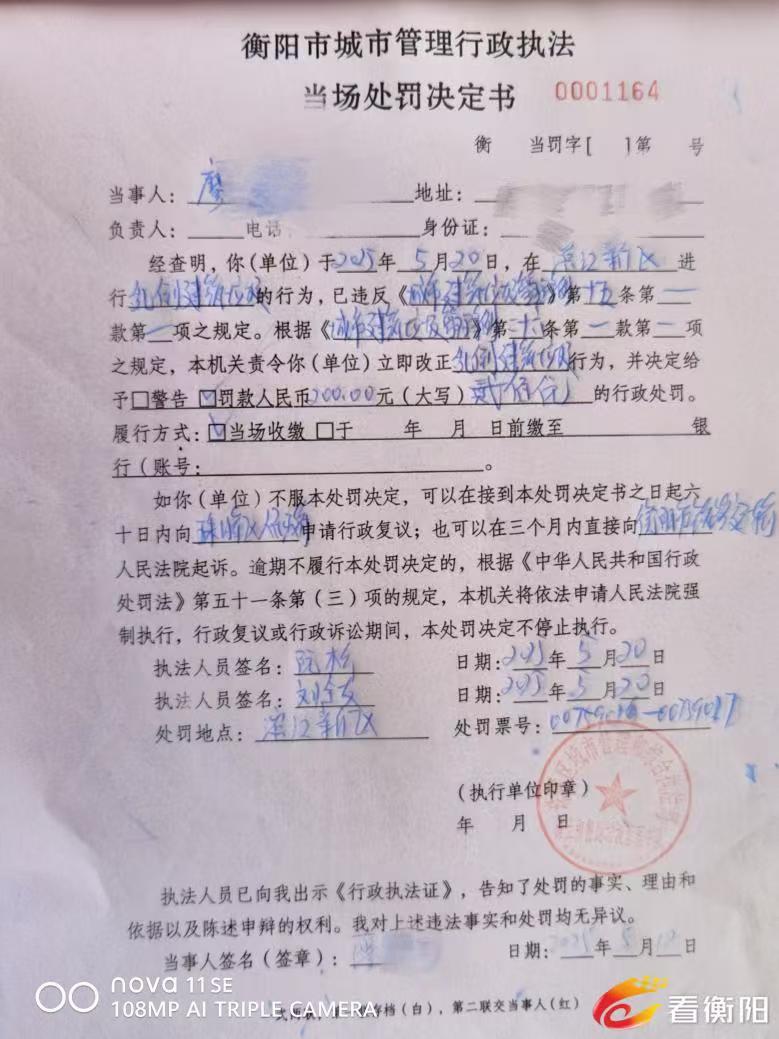 衡阳市城市管理行政执法
当场处罚决定书 0001164
衡 当罚字[ ]第 号
当事人：廖 地址：
负责人： 电话 身份证：
经查明，你（单位）于2025年5月20日，在滨江新区进
行乱倒建筑垃圾的行为，已违反《城市建筑垃圾管理》第十五条第一
款第一项之规定。根据《城市建筑垃圾管理》第条第一款第一项
之规定，本机关责令你（单位）立即改正乱倒建筑垃圾行为，并决定给
予□警告 ☑罚款人民币200.00元（大写）贰佰的行政处罚。
履行方式：☑当场收缴 □于 年 月 日前缴至 银
行（账号： 。
如你（单位）不服本处罚决定，可以在接到本处罚决定书之日起六
十日内向珠晖区申请行政复议；也可以在三个月内直接向衡阳市
人民法院起诉。逾期不履行本处罚决定的，根据《中华人民共和国行政
处罚法》第五十一条第（三）项的规定，本机关将依法申请人民法院强
制执行，行政复议或行政诉讼期间，本处罚决定不停止执行。
执法人员签名： 日期：2025年5月20日
执法人员签名： 日期：2025年5月20日
处罚地点：滨江新区 处罚票号：
（执行单位印章）
年 月 日
执法人员已向我出示《行政执法证》，告知了处罚的事实、理由和
依据以及陈述申辩的权利。我对上述违法事实和处罚均无异议。
当事人签名（签章）： 日期：2025年5月日
存档（白），第二联交当事人（红）
nova 11 SE
108MP AI TRIPLE CAMERA
看衡阳